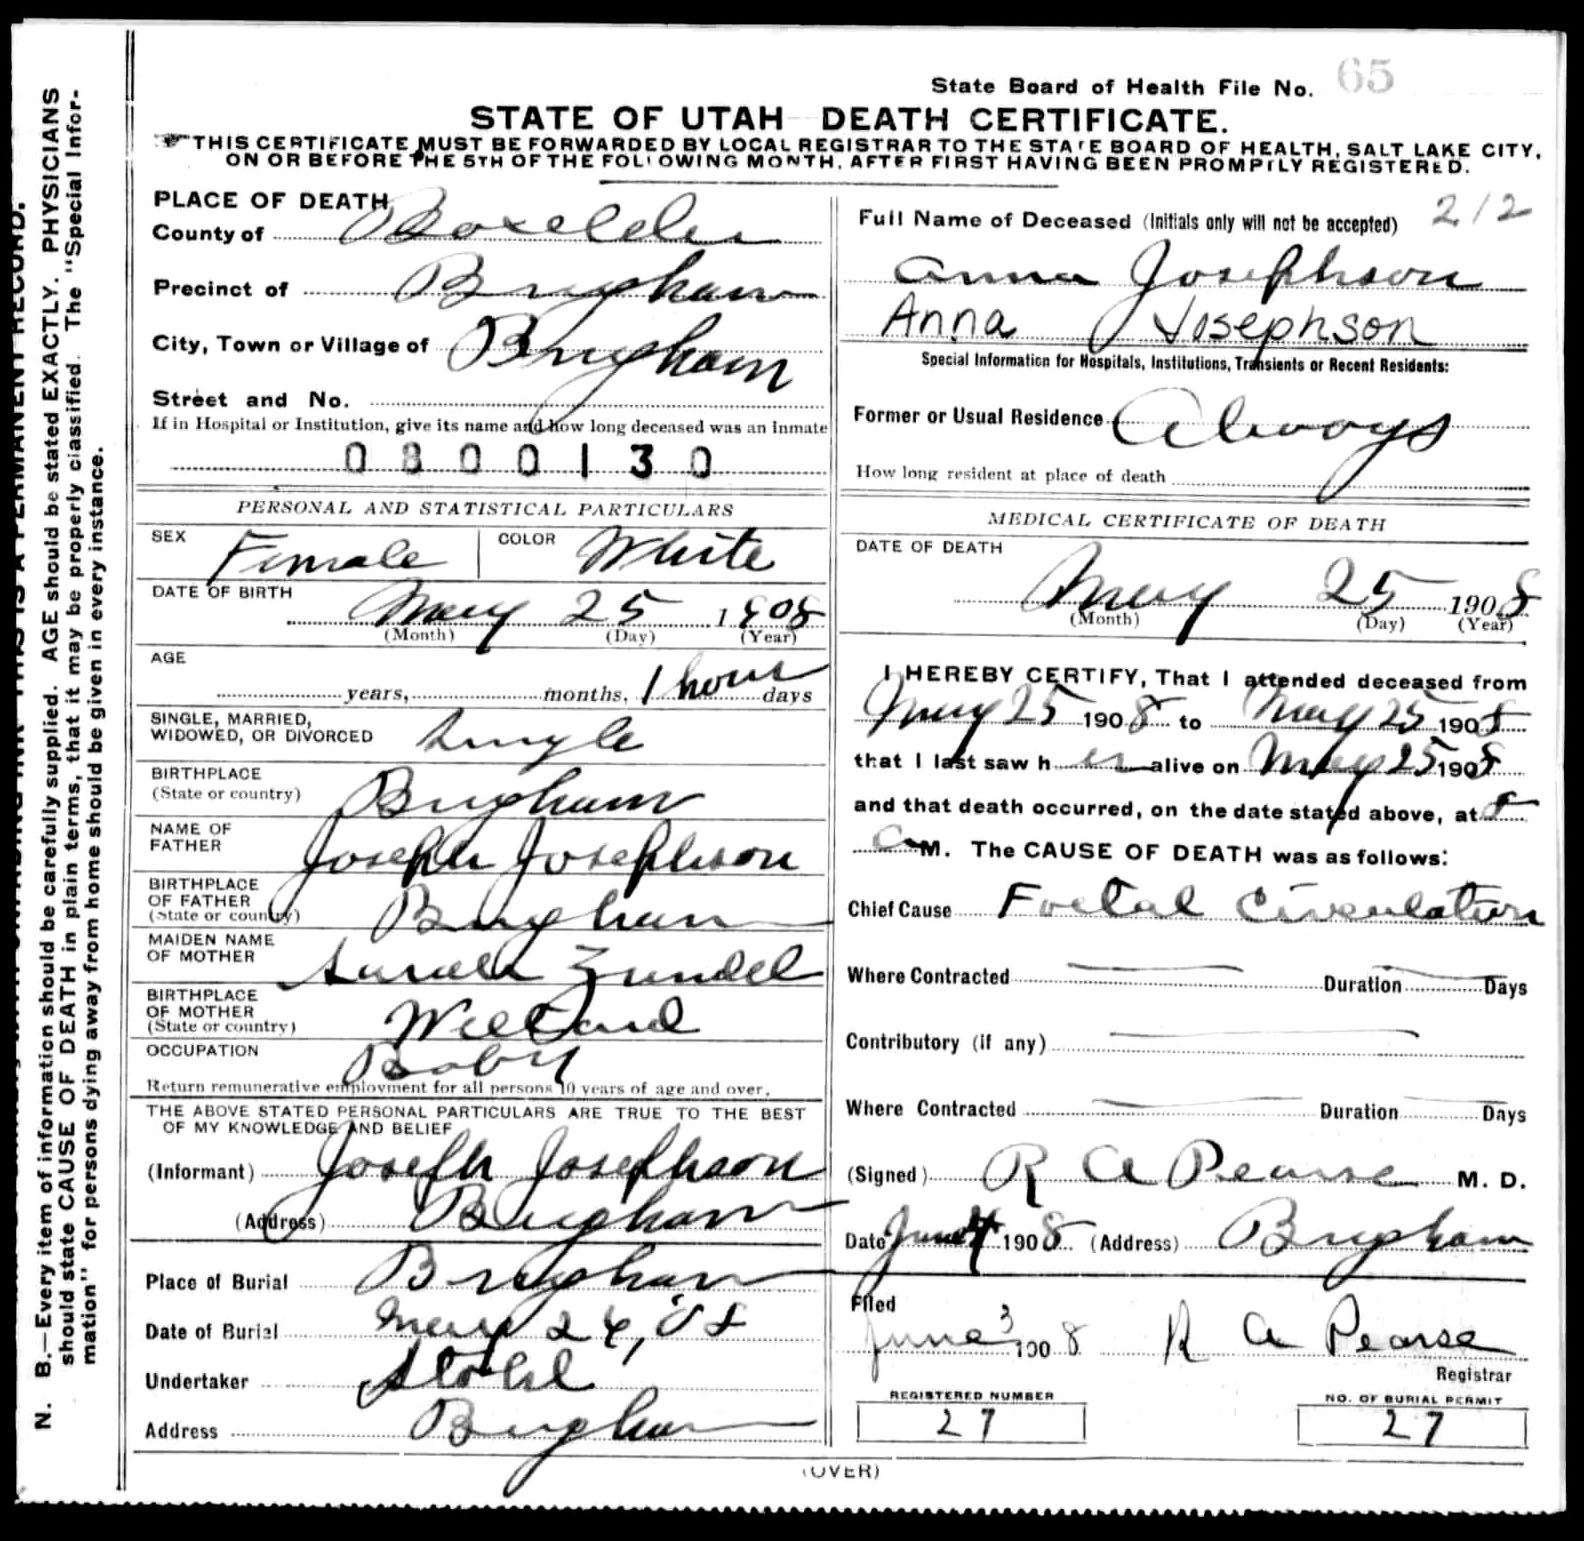 State Board of Health File No. 65
STATE OF UTAH DEATH CERTIFICATE.
THIS CERTIFICATE MUST BE FORWARDED BY LOCAL REGISTRAR TO THE STATE BOARD OF HEALTH, SALT LAKE CITY,
ON OR BEFORE THE 5TH OF THE FOLLOWING MONTH, AFTER FIRST HAVING BEEN PROMPTLY REGISTERED.
PLACE OF DEATH
County of Boxelder
Precinct of Brigham
City, Town or Village of Brigham
Street and No.
If in Hospital or Institution, give its name and how long deceased was an inmate
0800130
PERSONAL AND STATISTICAL PARTICULARS
SEX Female COLOR White
DATE OF BIRTH May 25 1908
(Month) (Day) (Year)
AGE
years, months, 1 hour days
SINGLE, MARRIED,
WIDOWED, OR DIVORCED Single
BIRTHPLACE
(State or country) Brigham
NAME OF
FATHER Joseph Josephson
BIRTHPLACE
OF FATHER
(State or country) Brigham
MAIDEN NAME
OF MOTHER Zundel
BIRTHPLACE
OF MOTHER
(State or country) Willard
OCCUPATION Baby
Return remunerative employment for all persons 10 years of age and over.
THE ABOVE STATED PERSONAL PARTICULARS ARE TRUE TO THE BEST
OF MY KNOWLEDGE AND BELIEF
(Informant) Joseph Josephson
(Address) Brigham
Place of Burial Brigham
Date of Burial May 26, '08
Undertaker Stohl
Address Brigham
Full Name of Deceased (Initials only will not be accepted) 212
Anna Josephson
Anna Josephson
Special Information for Hospitals, Institutions, Transients or Recent Residents:
Former or Usual Residence Always
How long resident at place of death
MEDICAL CERTIFICATE OF DEATH
DATE OF DEATH
May 25 1908
(Month) (Day) (Year)
I HEREBY CERTIFY, That I attended deceased from
May 25 1908 to May 25 1908
that I last saw h er alive on May 25 1908
and that death occurred, on the date stated above, at
a M. The CAUSE OF DEATH was as follows:
Chief Cause Foetal Circulation
Where Contracted Duration Days
Contributory (if any)
Where Contracted Duration Days
(Signed) R A Pearse M. D.
Date June 4 1908 (Address) Brigham
Filed
June 3 1908 R A Pearse
Registrar
REGISTERED NUMBER
27
NO. OF BURIAL PERMIT
27
(OVER)
N. B.—Every item of information should be carefully supplied. AGE should be stated EXACTLY. PHYSICIANS
should state CAUSE OF DEATH in plain terms, that it may be properly classified. The "Special Infor-
mation" for persons dying away from home should be given in every instance.